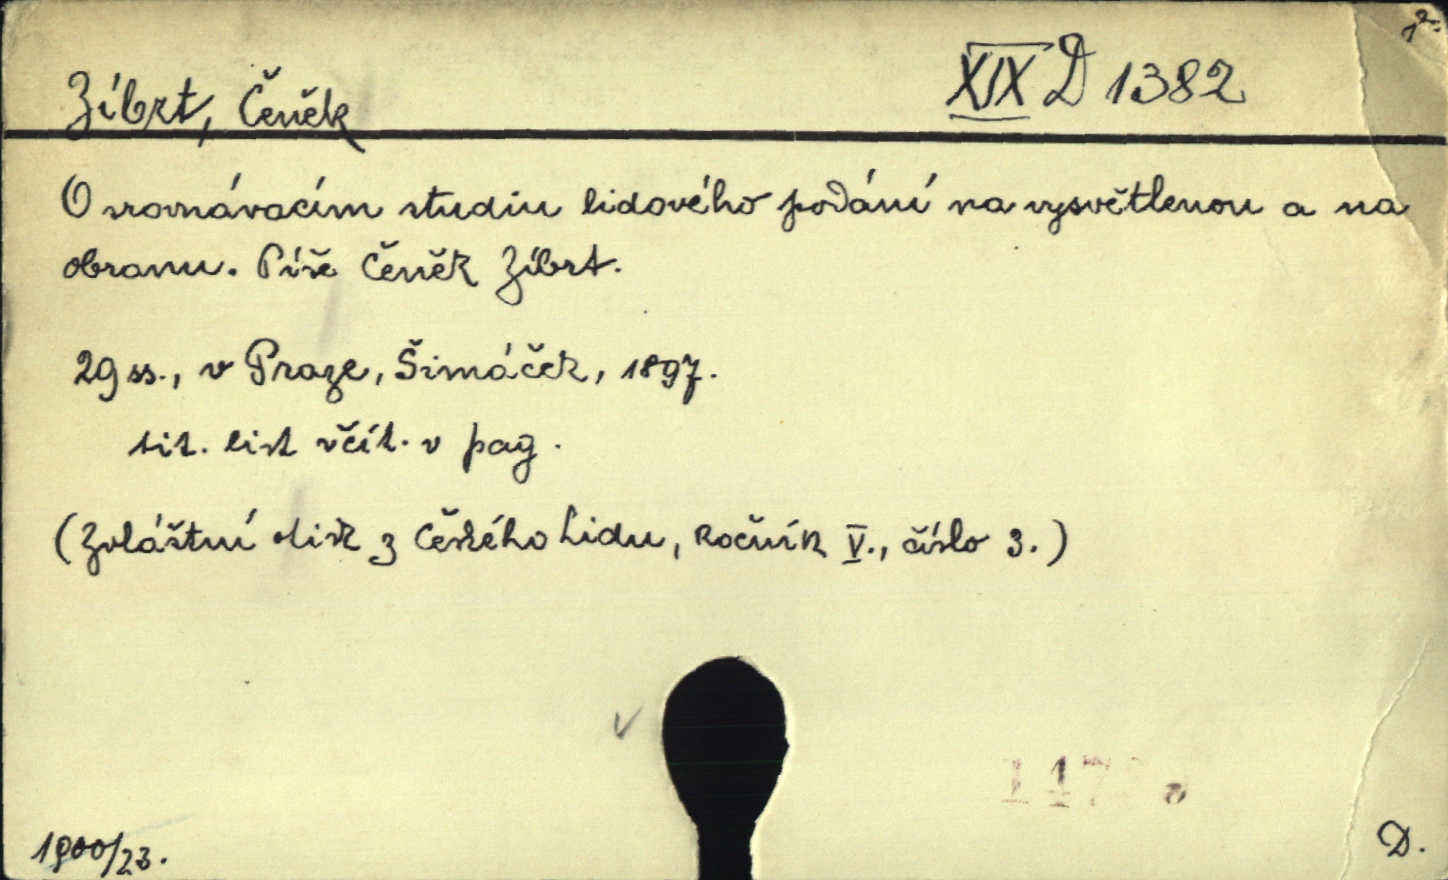 12.
Zíbrt, Čeněk
XIX D 1382
O srovnávacím studiu lidového podání na vysvětlenou a na
obranu. Píše Čeněk Zíbrt.
29 ss., v Praze, Šimáček, 1897.
tit. list včít. v pag.
(Zvláštní otisk z Českého Lidu, ročník V., číslo 3.)
1900/23.
D.